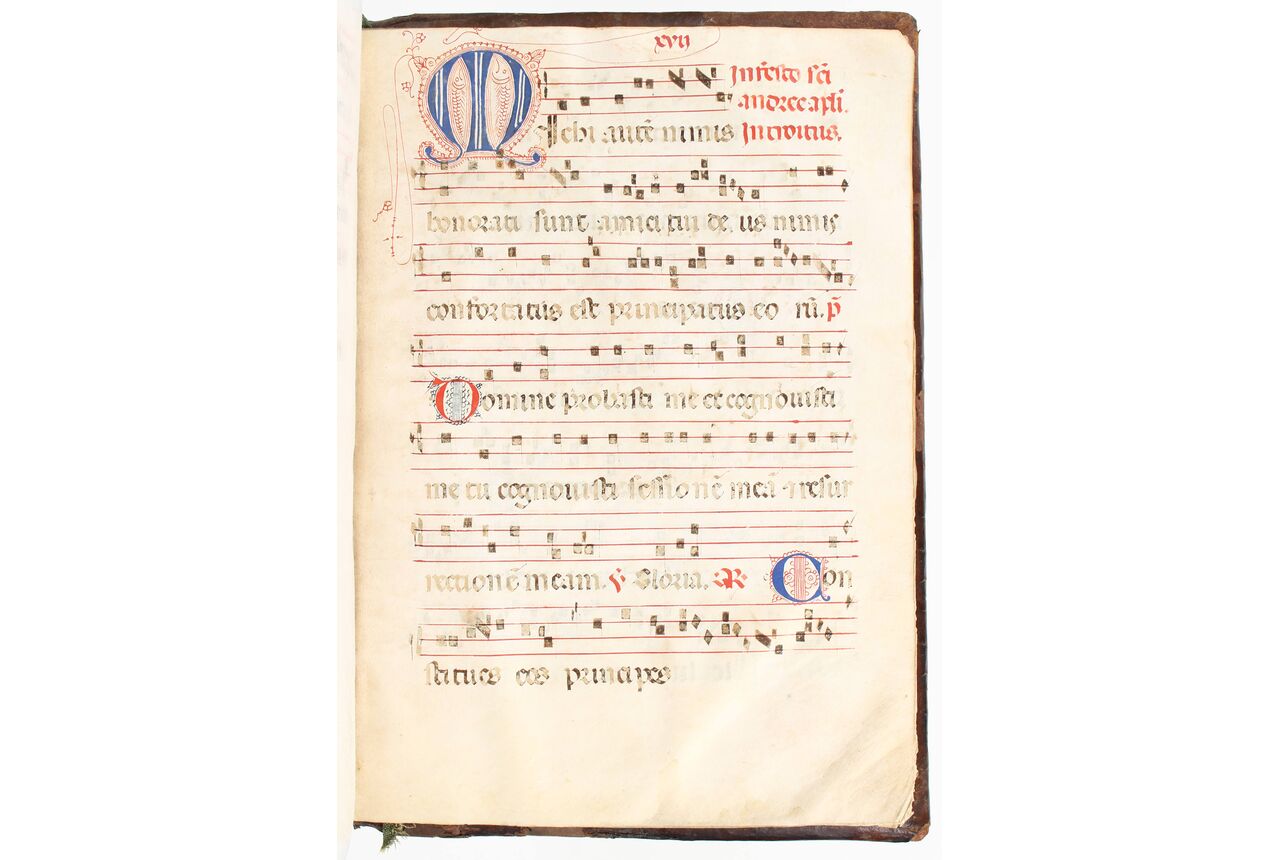 xvij
In festo sc̄i
andree apl̄i.
Michi autē nimis Introitus.
honorati sunt amici tui de us nimis
confortatus est principatus eo rū. p̄
Domine probasti me et cognouisti
me tu cognouisti sessionē meā ⁊ resur
rectionē meam. ℣ Gloria. Con
stitues eos principes